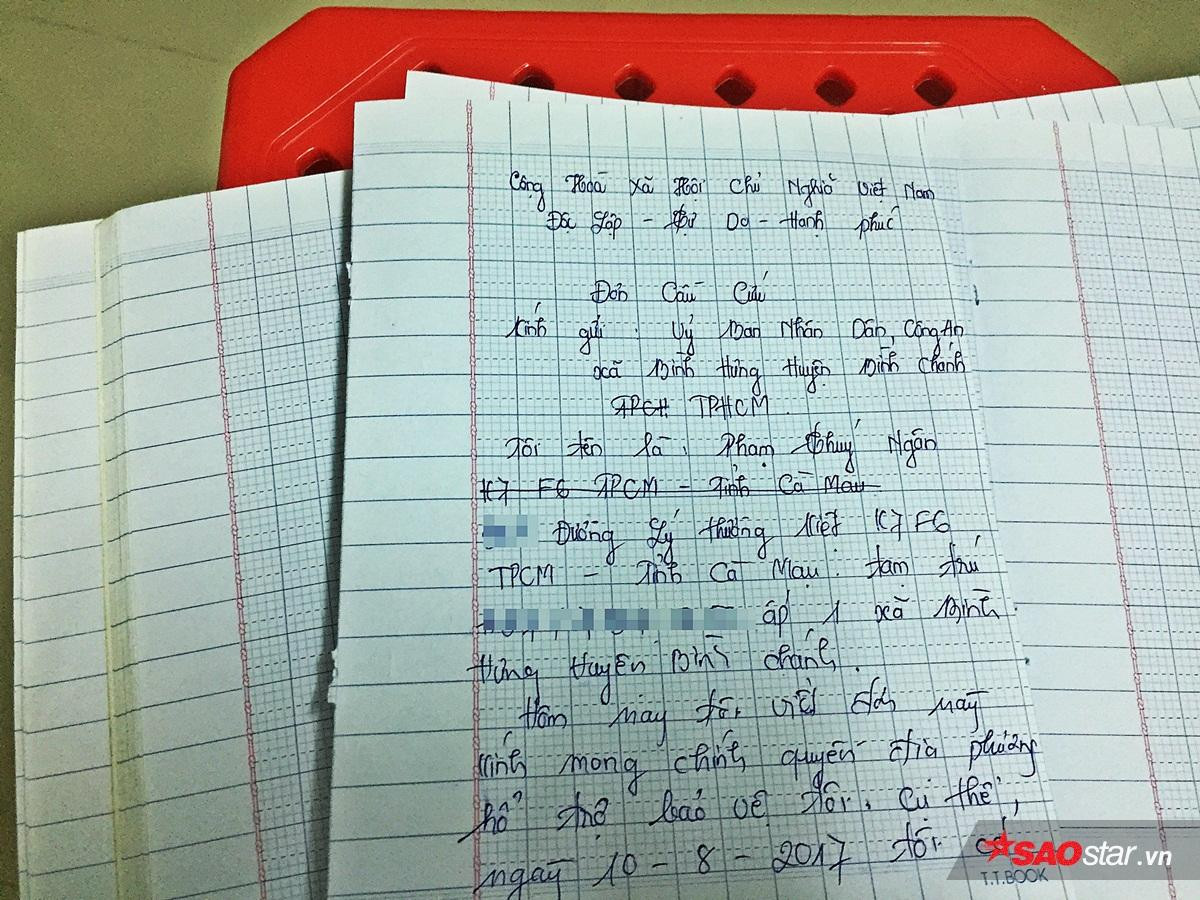 Cộng Hoà Xã Hội Chủ Nghiã Việt Nam
Độc Lập - Tự Do - Hạnh phúc.
Đơn Cầu Cứu
Kính gửi: Uỷ Ban Nhân Dân, Công An
xã Bình Hưng Huyện Bình Chánh
TPCH TPHCM.
Tôi tên là: Phạm Thuý Ngân
K7 F6 TPCM - Tỉnh Cà Mau
Đường Lý thường Kiệt K7 F6
TPCM - Tỉnh Cà Mau. tạm trú
ấp 1 xã Bình
Hưng Huyện Bình chánh.
Hôm nay tôi viết đơn này
kính mong chính quyền địa phương
hổ trợ bảo vệ tôi. Cụ thể,
ngày 10 - 8 - 2017 tôi có
SAOstar.vn
T.T.BOOK